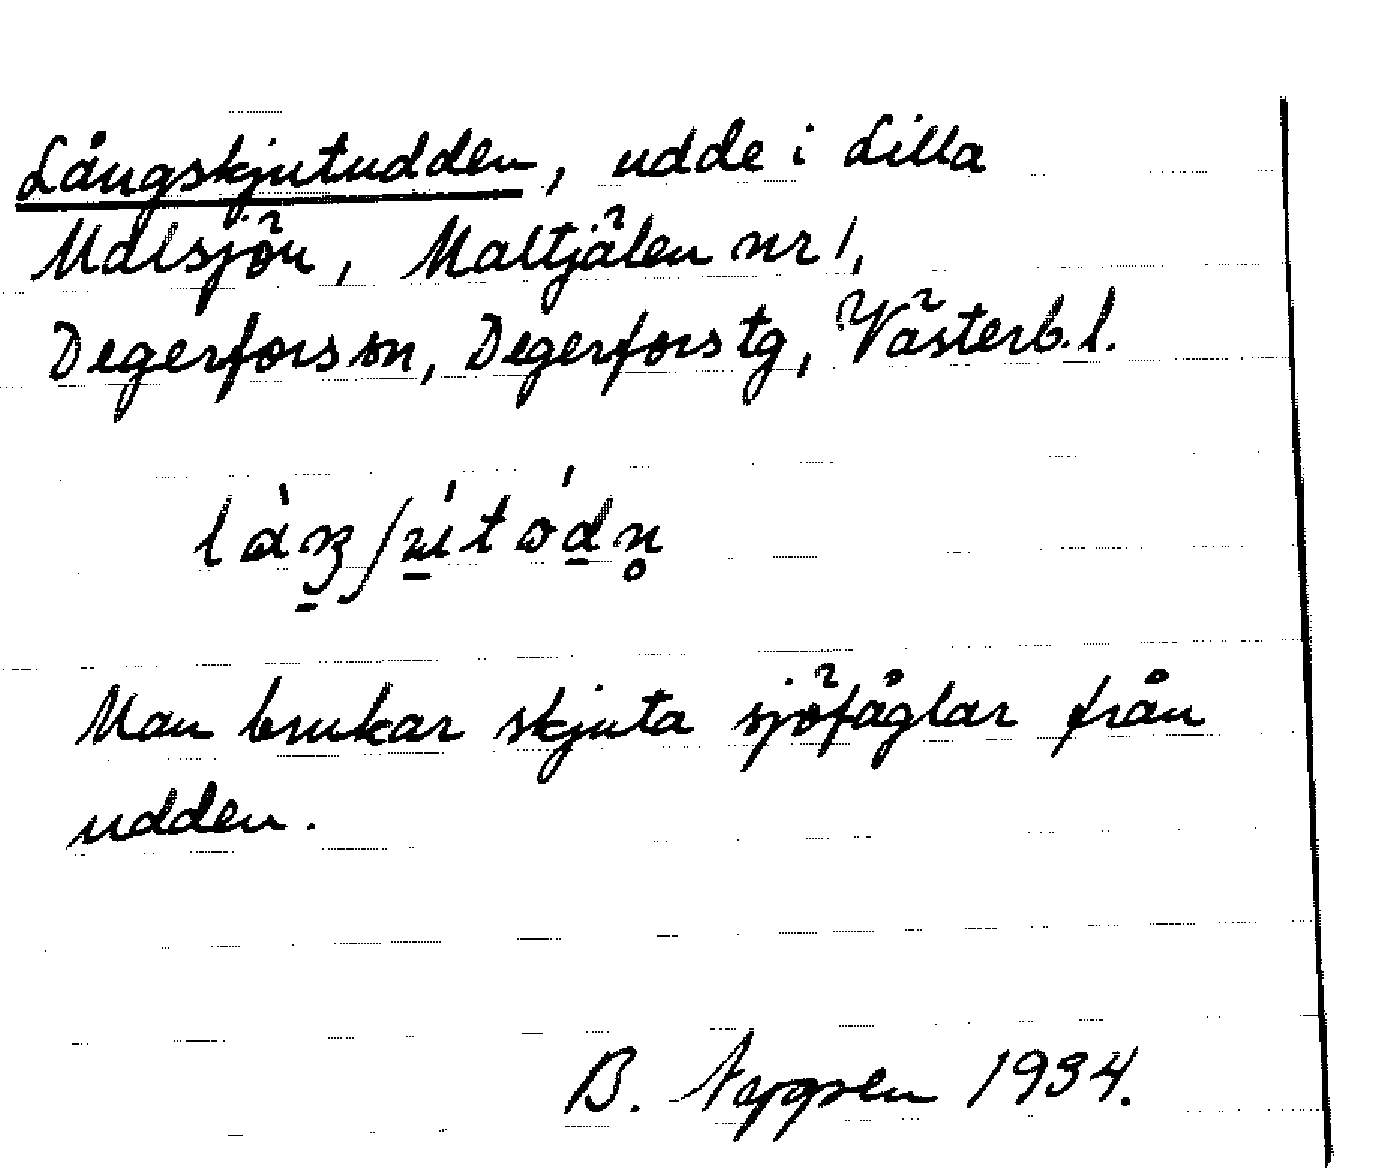 Långskjutudden, udde i Lilla
Malsjön, Maltjälen nr 1,
Degerfors sn, Degerfors tg, Västerb. l.
Man brukar skjuta sjöfåglar från
udden.
B. 1934.